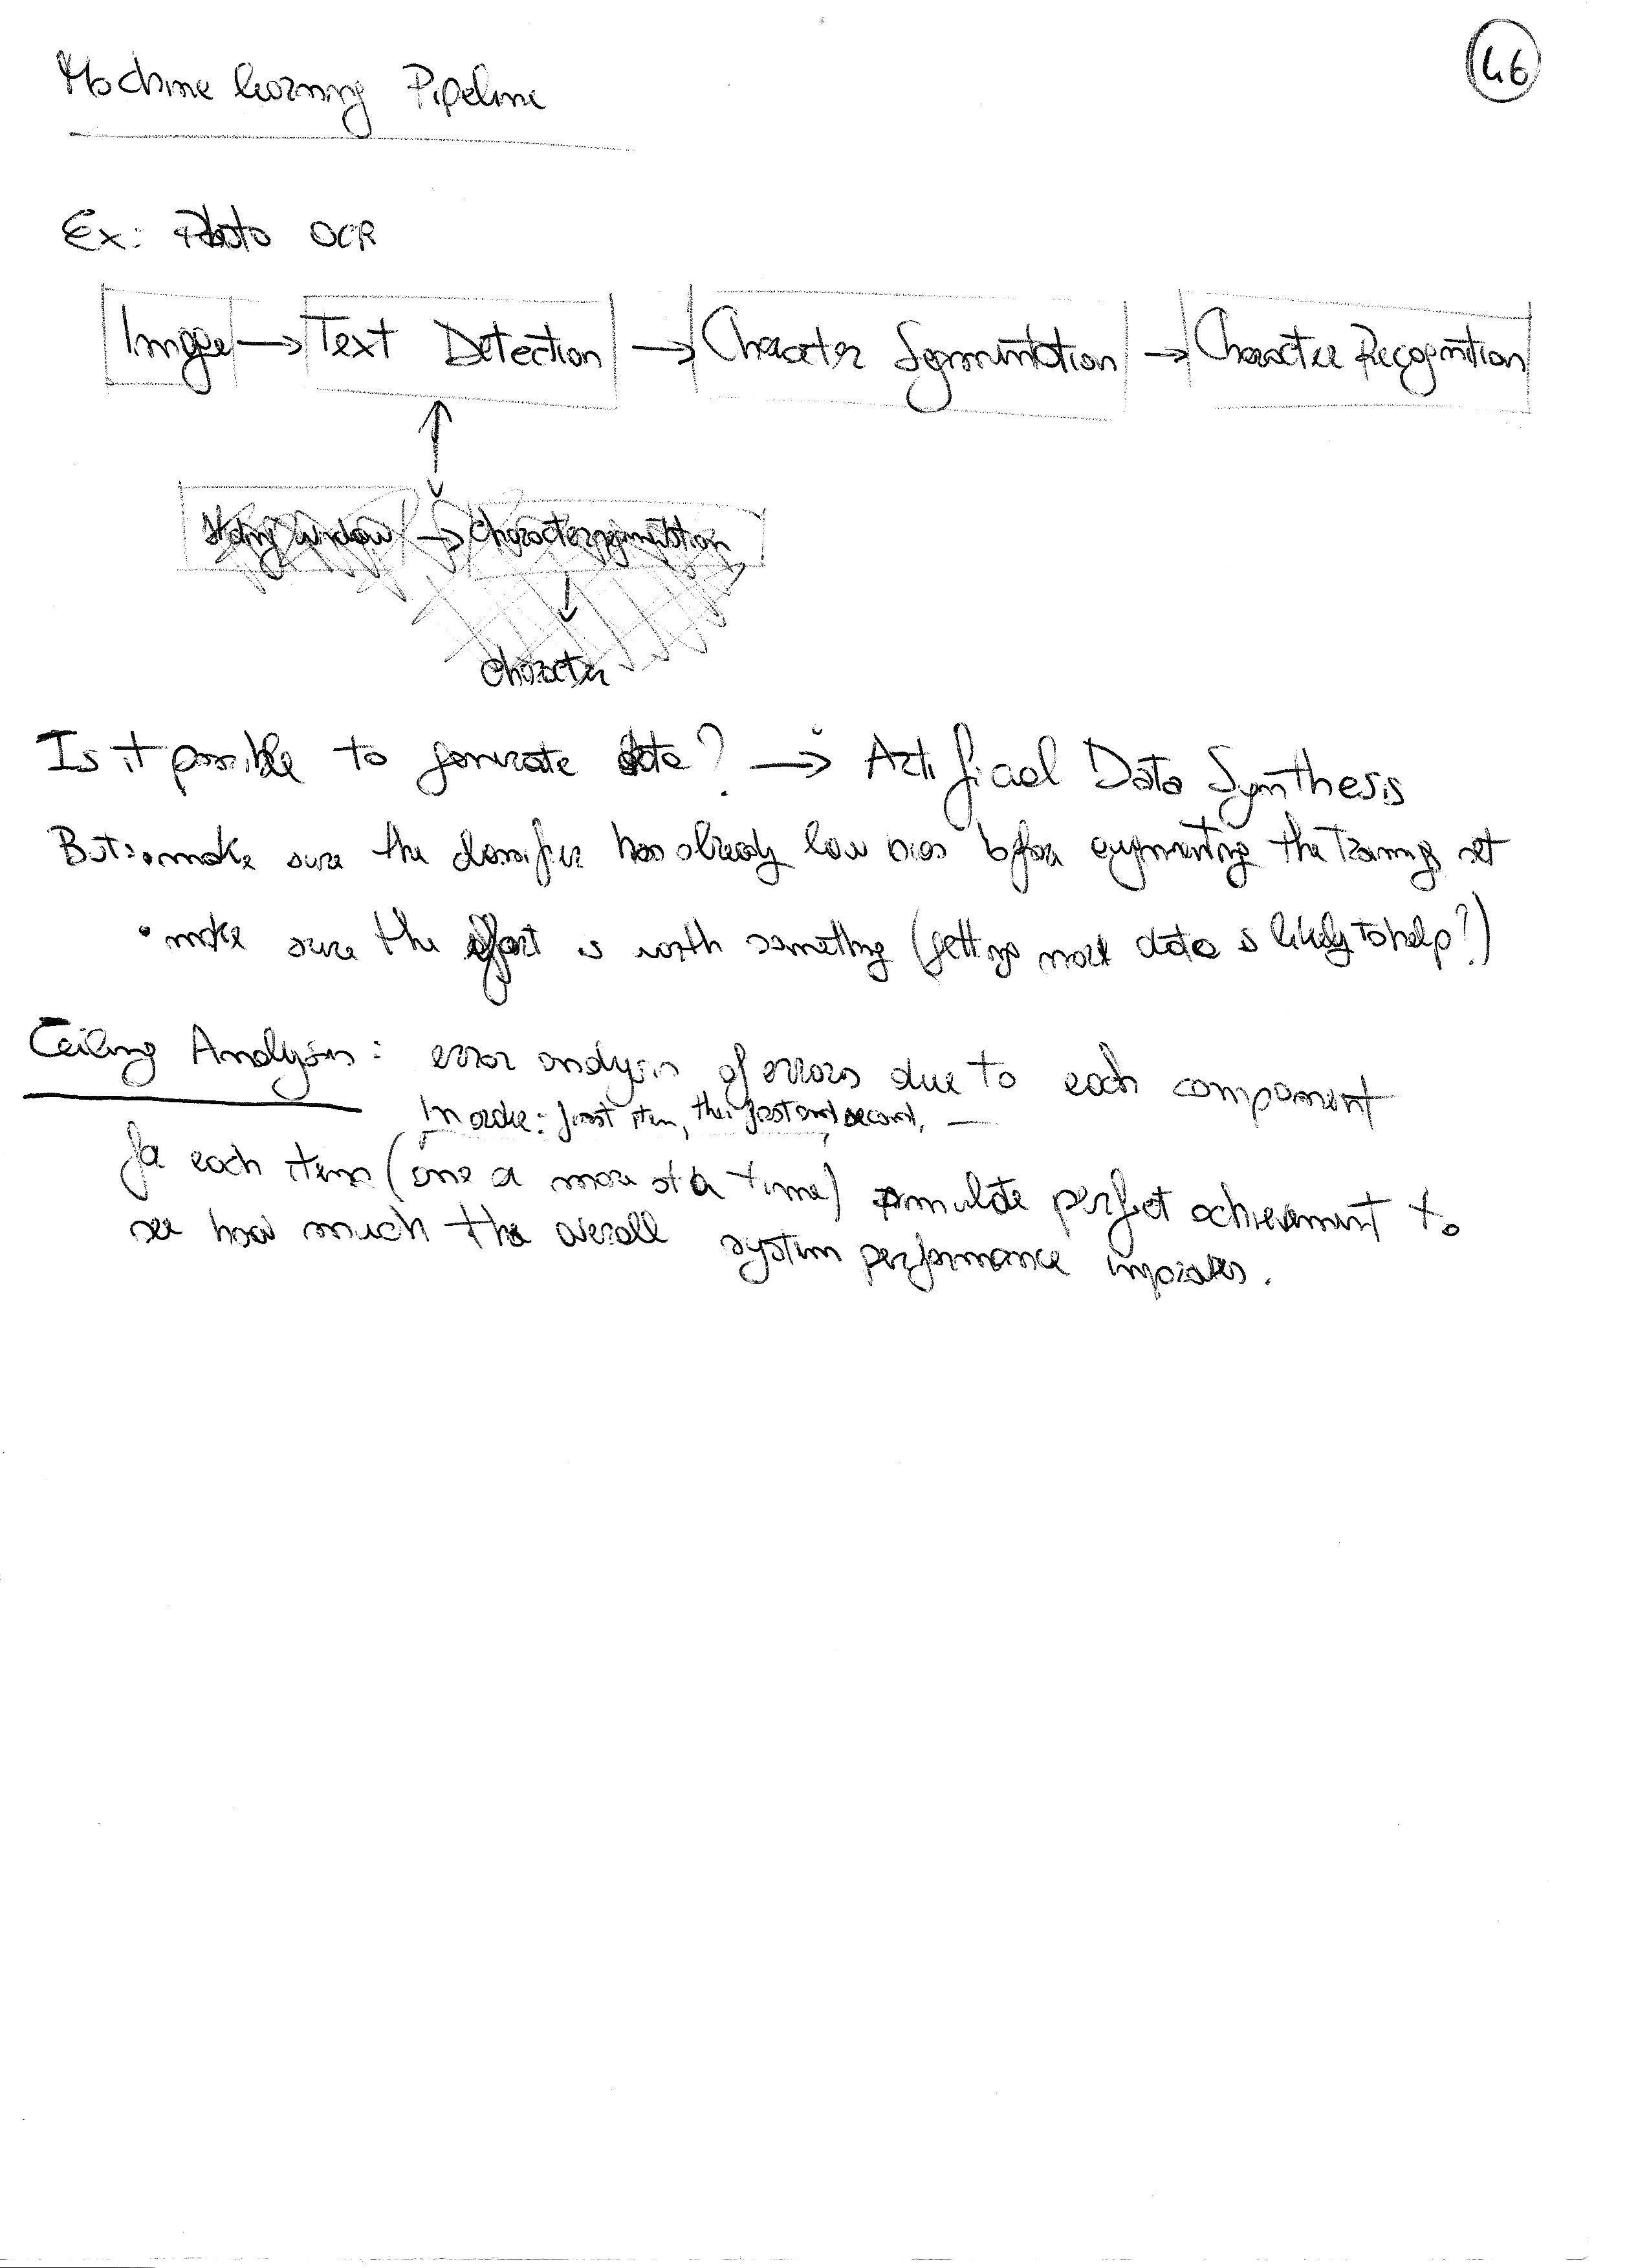 46
Machine learning Pipeline
Ex: Photo OCR
Image → Text Detection → Character Segmentation → Character Recognition
Sliding window → Character segmentation
Character
Is it possible to generate data? → Artificial Data Synthesis
But: • make sure the classifier has already low bias before augmenting the training set
• make sure the effort is worth something (getting more data is likely to help?)
Ceiling Analysis: error analysis of errors due to each component
In order: first item, then first and second, —
for each item (one or more at a time) simulate perfect achievement to
see how much the overall system performance improves.